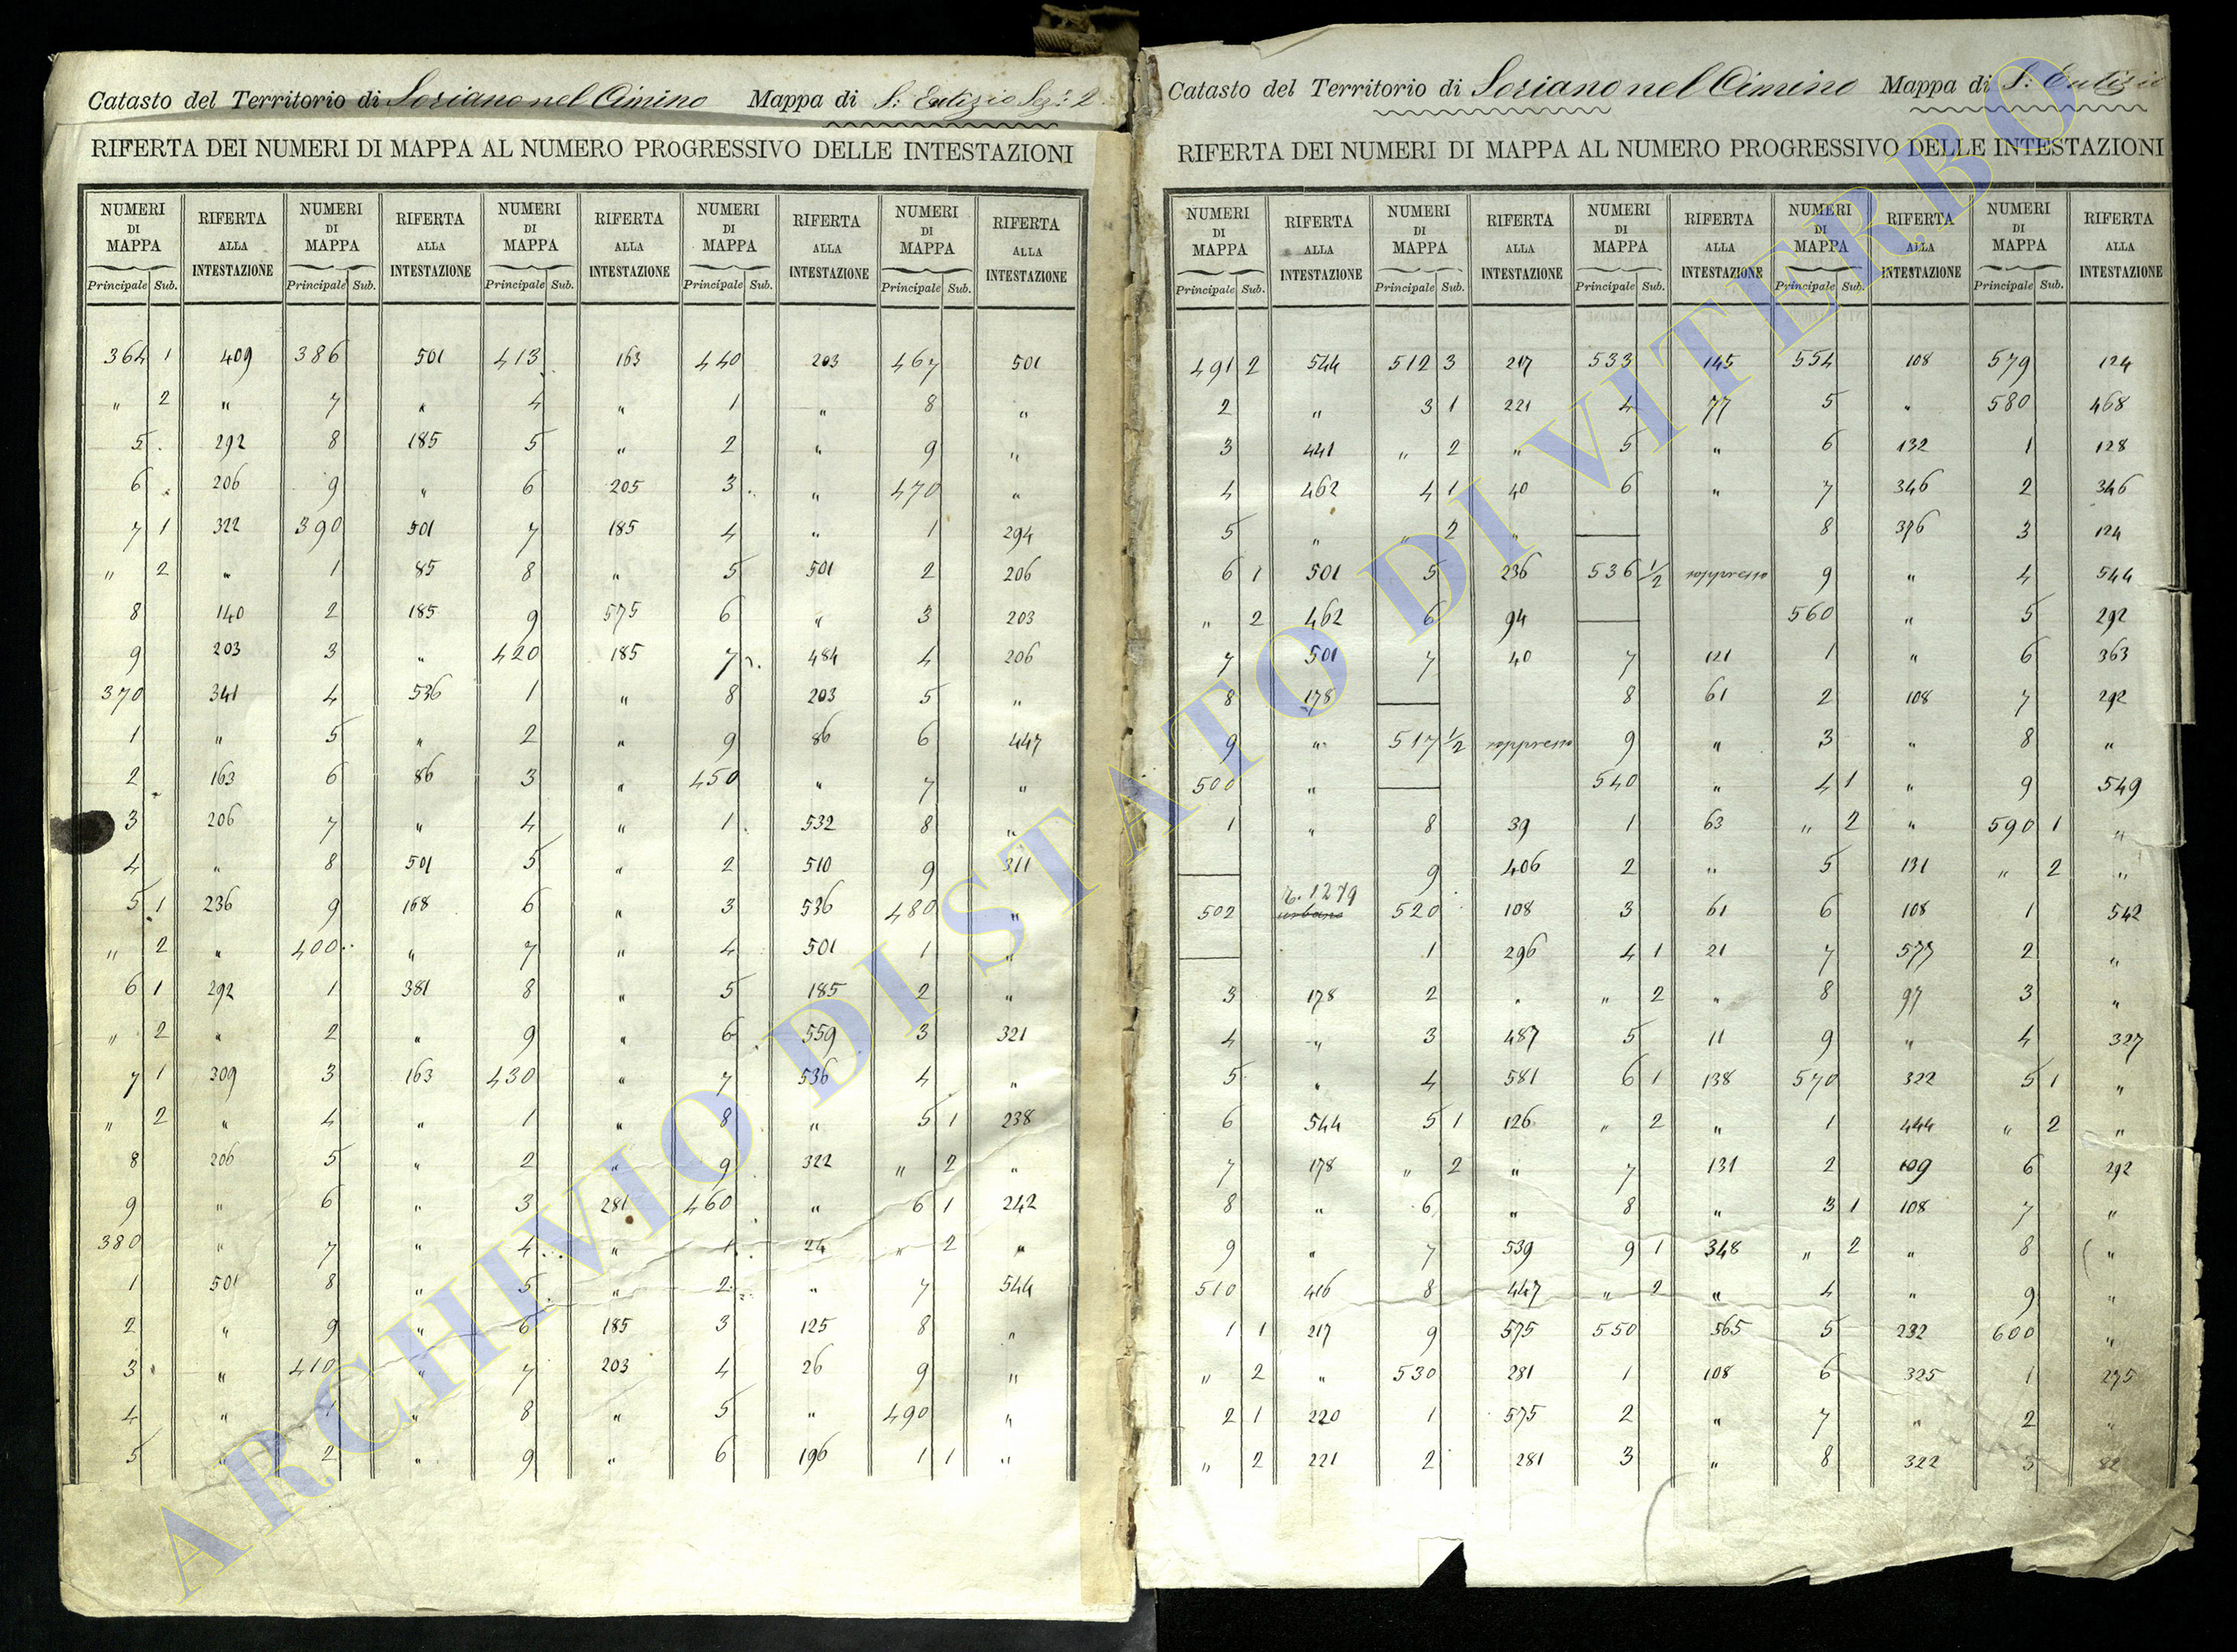 Catasto del Territorio di Soriano nel Cimino Mappa di S. Eutizio Sez. 2
RIFERTA DEI NUMERI DI MAPPA AL NUMERO PROGRESSIVO DELLE INTESTAZIONI
NUMERI DI MAPPA RIFERTA ALLA INTESTAZIONE NUMERI DI MAPPA RIFERTA ALLA INTESTAZIONE NUMERI DI MAPPA RIFERTA ALLA INTESTAZIONE NUMERI DI MAPPA RIFERTA ALLA INTESTAZIONE NUMERI DI MAPPA RIFERTA ALLA INTESTAZIONE
Principale Sub. Principale Sub. Principale Sub. Principale Sub. Principale Sub.
364 1 409 386 501 413 163 440 203 467 501
" 2 " 7 " 4 " 1 " 8 "
5 292 8 185 5 " 2 " 9 "
6 206 9 " 6 205 3 " 470 "
7 1 322 390 501 7 185 4 " 1 294
" 2 " 1 85 8 " 5 501 2 206
8 140 2 185 9 575 6 " 3 203
9 203 3 " 420 185 7 484 4 206
370 341 4 536 1 " 8 203 5 "
1 " 5 " 2 " 9 86 6 447
2 163 6 86 3 " 450 " 7 "
3 206 7 " 4 " 1 532 8 "
4 " 8 501 5 " 2 510 9 311
5 1 236 9 168 6 " 3 536 480 "
" 2 " 400 " 7 " 4 501 1 "
6 1 292 1 381 8 " 5 185 2 "
" 2 " 2 " 9 " 6 559 3 321
7 1 309 3 163 430 " 7 536 4 "
" 2 " 4 " 1 " 8 " 5 1 238
8 206 5 " 2 " 9 322 " 2 "
9 " 6 " 3 281 460 " 6 1 242
380 " 7 " 4 " 1 24 " 2 "
1 501 8 " 5 " 2 " 7 544
2 " 9 " 6 185 3 125 8 "
3 " 410 " 7 203 4 26 9 "
4 " 1 " 8 " 5 " 490 "
5 " 2 " 9 " 6 196 1 1 "
Catasto del Territorio di Soriano nel Cimino Mappa di S. Eutizio
RIFERTA DEI NUMERI DI MAPPA AL NUMERO PROGRESSIVO DELLE INTESTAZIONI
NUMERI DI MAPPA RIFERTA ALLA INTESTAZIONE NUMERI DI MAPPA RIFERTA ALLA INTESTAZIONE NUMERI DI MAPPA RIFERTA ALLA INTESTAZIONE NUMERI DI MAPPA RIFERTA ALLA INTESTAZIONE NUMERI DI MAPPA RIFERTA ALLA INTESTAZIONE
Principale Sub. Principale Sub. Principale Sub. Principale Sub. Principale Sub.
491 2 544 512 3 217 533 145 554 108 579 124
2 " 3 1 221 4 77 5 " 580 468
3 441 " 2 " 5 " 6 132 1 128
4 462 4 1 40 6 " 7 346 2 346
5 " " 2 " 8 396 3 124
6 1 501 5 236 536 1/2 soppresso 9 " 4 544
" 2 462 6 94 560 " 5 292
7 501 7 40 7 121 1 " 6 363
8 178 8 61 2 108 7 292
9 " 517 1/2 soppresso 9 " 3 " 8 "
500 " 540 " 4 1 " 9 549
1 " 8 39 1 63 " 2 " 590 1 "
9 406 2 " 5 131 " 2 "
502 r. 1279 urbano 520 108 3 61 6 108 1 542
1 296 4 1 21 7 577 2 "
3 178 2 " " 2 " 8 97 3 "
4 " 3 487 5 11 9 " 4 327
5 " 4 581 6 1 138 570 322 5 1 "
6 544 5 1 126 " 2 " 1 444 " 2 "
7 178 " 2 " 7 131 2 109 6 292
8 " 6 " 8 " 3 1 108 7 "
9 " 7 539 9 1 348 " 2 " 8 "
510 416 8 447 " 2 " 4 " 9 "
1 1 217 9 575 550 565 5 232 600 "
" 2 " 530 281 1 108 6 325 1 275
2 1 220 1 575 2 " 7 " 2 "
" 2 221 2 281 3 " 8 322 3 82
ARCHIVIO DI STATO DI VITERBO